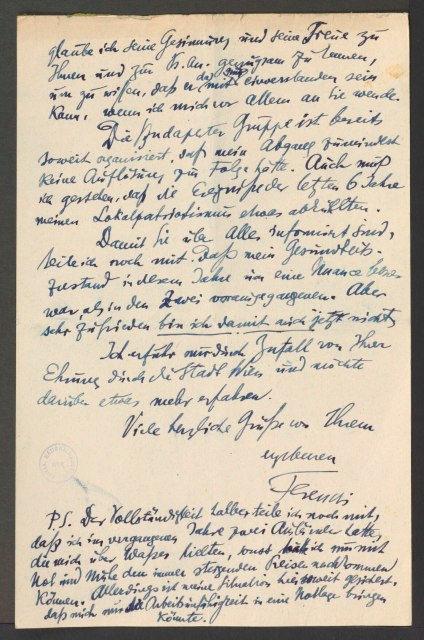 glaube ich seine Gesinnung und seine Treue zu
Ihnen und zur Ps. An. genugsam zu kennen,
um zu wissen, daß er damit einverstanden sein
kann, wenn ich mich vor allem an Sie wende.
Die Budapester Gruppe ist bereits
soweit organisiert, daß mein Abgang zumindest
keine Auflösung zur Folge hätte. Auch muß
ich gestehen, daß die Ereignisse der letzten 6 Jahre
meinen Lokalpatriotismus etwas abkühlten.
Damit Sie über Alles informiert sind,
teile ich noch mit, daß mein Gesundheits-
zustand in diesem Jahre um eine Nuance besser
war, als in den zwei vorangegangenen. Aber
sehr zufrieden bin ich damit auch jetzt nicht.
Ich erfuhr nur durch Zufall von Ihrer
Ehrung durch die Stadt Wien und möchte
darüber etwas mehr erfahren.
Viele herzliche Grüße von Ihrem
ergebenen
Ferenczi
P.S. Der Vollständigkeit halber teile ich noch mit,
daß ich im vergangenen Jahre zwei Ausländer hatte,
die mich über Wasser hielten, sonst hätte ich nur mit
Not und Mühe den immer steigenden Preisen nachkommen
können. Allerdings ist meine Situation hier soweit gesichert,
daß mich nur die Arbeitsunfähigkeit in eine Notlage bringen
könnte.